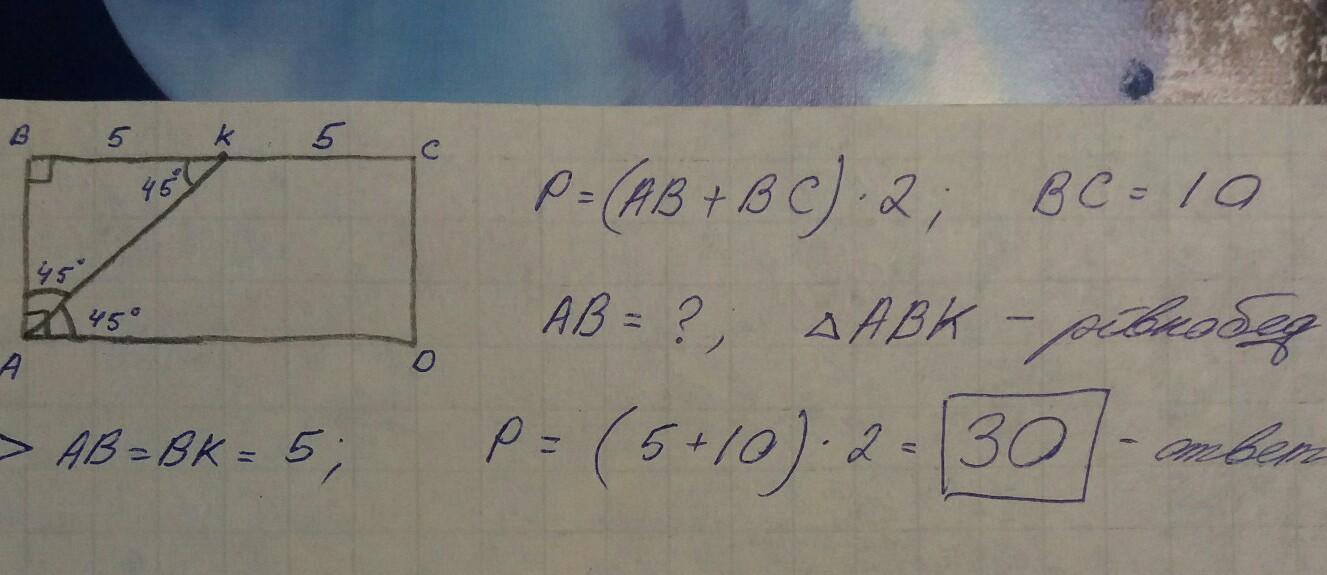 B 5 K 5 C
45°
45°
45°
A D
P = (AB + BC) · 2; BC = 10
AB = ?; △ABK – рівнобед
> AB = BK = 5; P = (5 + 10) · 2 = 30 - ответ